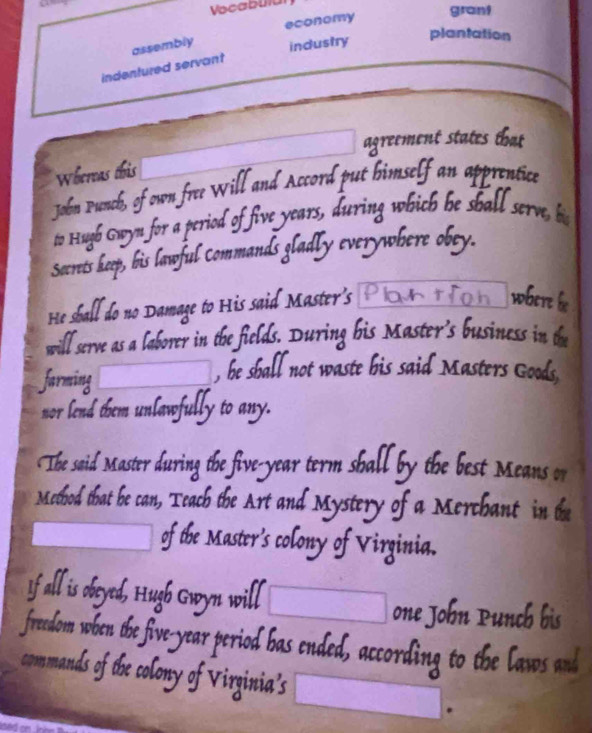 grant
economy
plantation
assembly
industry
indentured servant
agreement states that
Whereas this
John Punch, of own free Will and Accord put himself an apprentice
to Hugh Gwyn for a period of five years, during which he shall serve, his
Secrets keep, his lawful Commands gladly everywhere obey.
He shall do no Damage to His said Master's Plantrion where he
will serve as a laborer in the fields. During his Master's business in the
farming , he shall not waste his said Masters Goods,
nor lend them unlawfully to any.
The said Master during the five-year term shall by the best Means or
Method that he can, Teach the Art and Mystery of a Merchant in the
of the Master's colony of Virginia.
If all is obeyed, Hugh Gwyn will one John Punch his
freedom when the five-year period has ended, according to the laws and
commands of the colony of Virginia's .